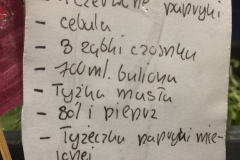 czerwone papryki
- cebula
- 3 ząbki czosnku
- 700ml. bulionu
- Łyżka masła
- Sól i pieprz
- Łyżeczka papryki mie-
lonej